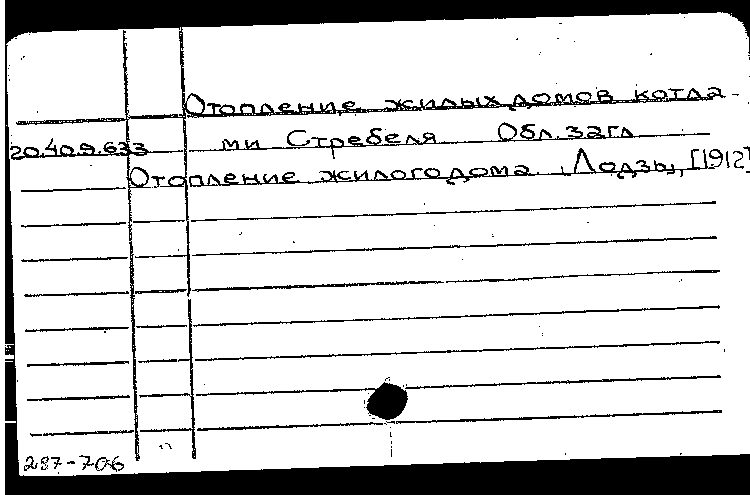 Отопление жилых домов котла-
20.40.9.633 ми Стребеля Обл. загл
Отопление жилого дома. Лодзь, [1912]
287-706